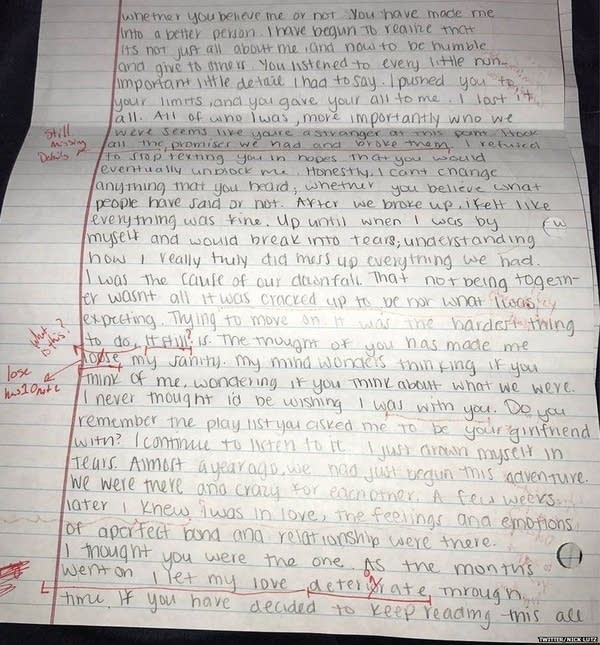 whether you believe me or not. You have made me
into a better person. I have begun to realize that
its not just all about me, and now to be humble
and give to others. You listened to every little non-
important little detail I had to say. I pushed you to
your limits, and you gave your all to me. I lost it
all. All of who I was, more importantly who we
were seems like youre a stranger at this point. I took
Still missing Details
all the promises we had and broke them, I refused
to stop texting you in hopes that you would
eventually unblock me. Honestly, I cant change
anything that you heard, whether you believe what
people have said or not. After we broke up, I felt like
everything was fine. Up until when I was by
myself and would break into tears, understanding
how I really truly did mess up everything we had.
I was the cause of our downfall. That not being togeth-
er wasnt all it was cracked up to be nor what I was
expecting. Trying to move on it was the hardest thing
what is this?
to do, it still? is. The thought of you has made me
lose has 1 O not 2
loose my sanity. My mind wonders thinking if you
think of me, wondering if you think about what we were.
I never thought id be wishing I was with you. Do you
remember the play list you asked me to be your girlfriend
with? I continue to listen to it. I just drown myself in
tears. Almost a year ago, we had just begun this adventure.
We were there and crazy for each other. A few weeks
later I knew i was in love, the feelings and emotions
of a perfect bond and relationship were there.
I thought you were the one. As the months
went on I let my love deterirate through
time. If you have decided to keep reading this all
TWITTER/NICK LUTZ